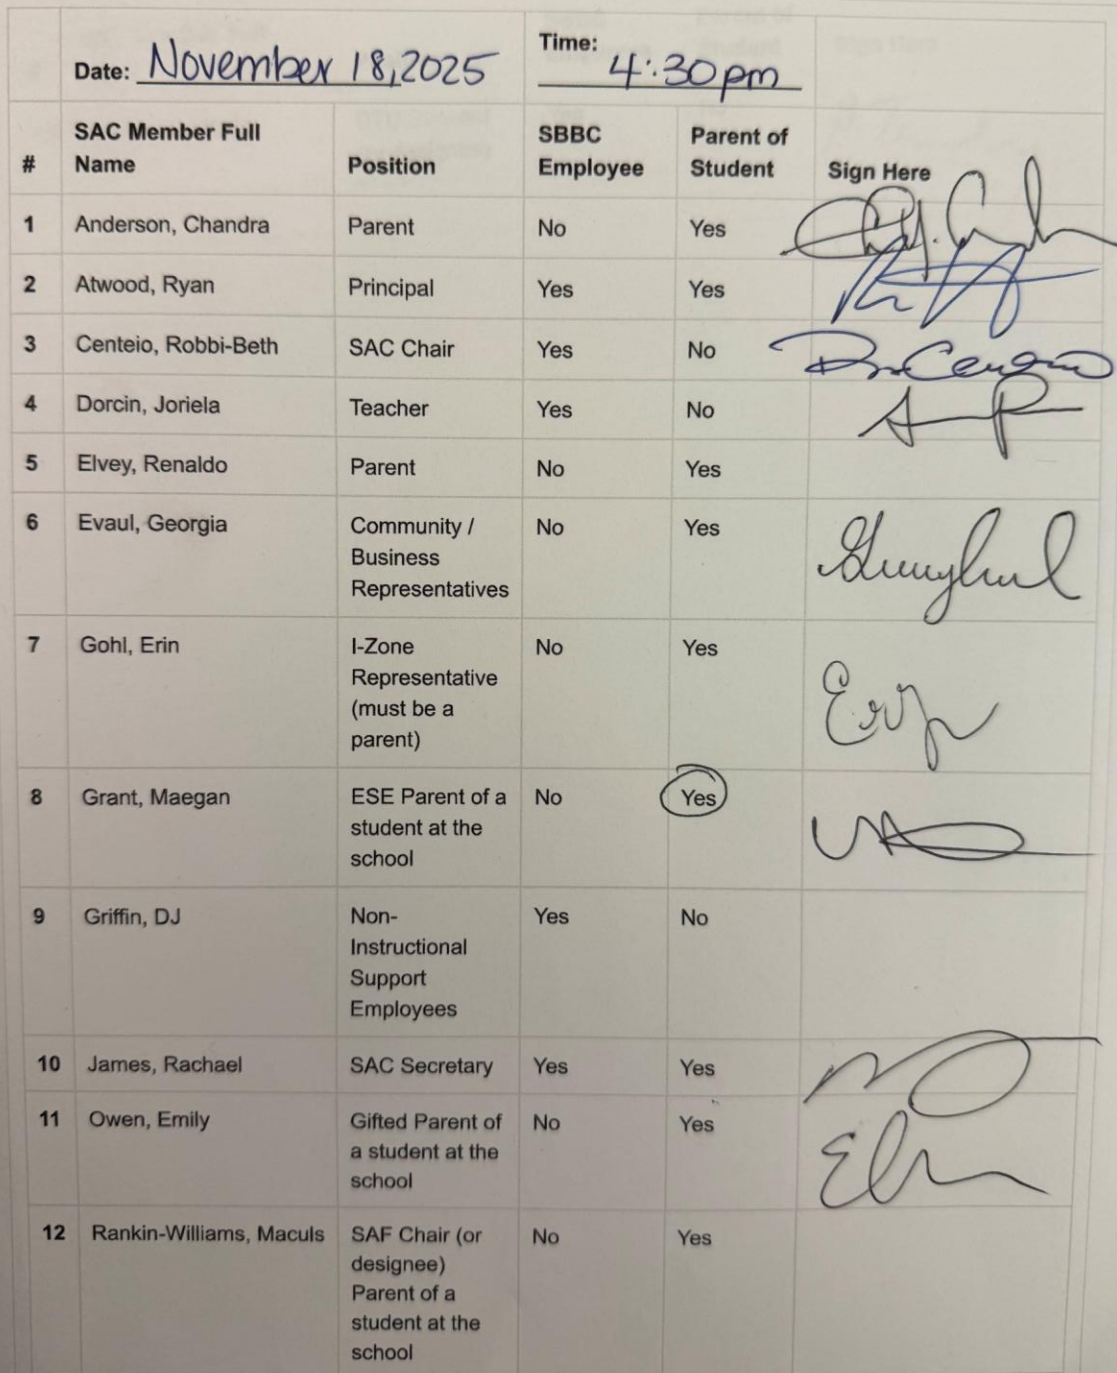 Date: November 18, 2025 Time: 4:30pm
# SAC Member Full Name Position SBBC Employee Parent of Student Sign Here
1 Anderson, Chandra Parent No Yes
2 Atwood, Ryan Principal Yes Yes
3 Centeio, Robbi-Beth SAC Chair Yes No
4 Dorcin, Joriela Teacher Yes No
5 Elvey, Renaldo Parent No Yes
6 Evaul, Georgia Community / No Yes
Business
Representatives
7 Gohl, Erin I-Zone No Yes
Representative
(must be a
parent)
8 Grant, Maegan ESE Parent of a No Yes
student at the
school
9 Griffin, DJ Non- Yes No
Instructional
Support
Employees
10 James, Rachael SAC Secretary Yes Yes
11 Owen, Emily Gifted Parent of No Yes
a student at the
school
12 Rankin-Williams, Maculs SAF Chair (or No Yes
designee)
Parent of a
student at the
school